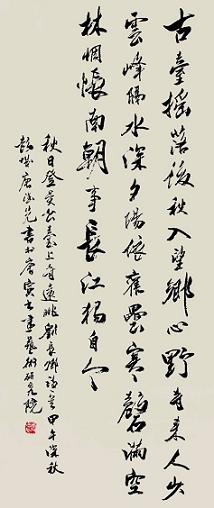 古臺摇落後秋入望鄉心野寺来人少
雲峰隔水深夕陽依舊壘寒磬滿空
林惆悵南朝事長江独自今
秋日登吴公臺上寺遠眺劉長卿詩甲午深秋
書於唐寅書畫藝術研究院